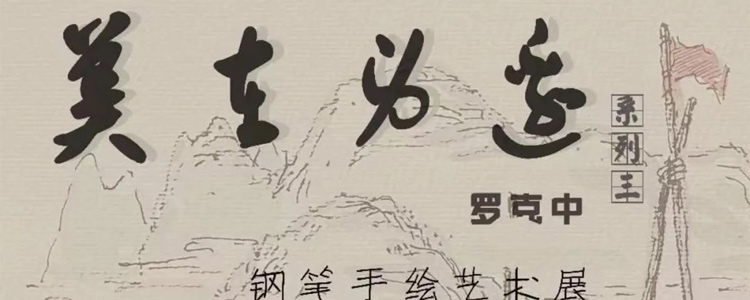 美在身边
系列
罗克中
钢笔手绘艺术展